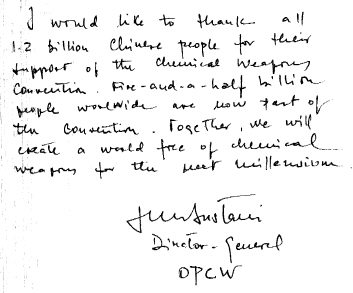 I would like to thank all
1.2 billion Chinese people for their
support of the Chemical Weapons
Convention. Five-and-a-half billion
people worldwide are now part of
the Convention. Together, we will
create a world free of chemical
weapons for the next millennium.
Director-General
OPCW